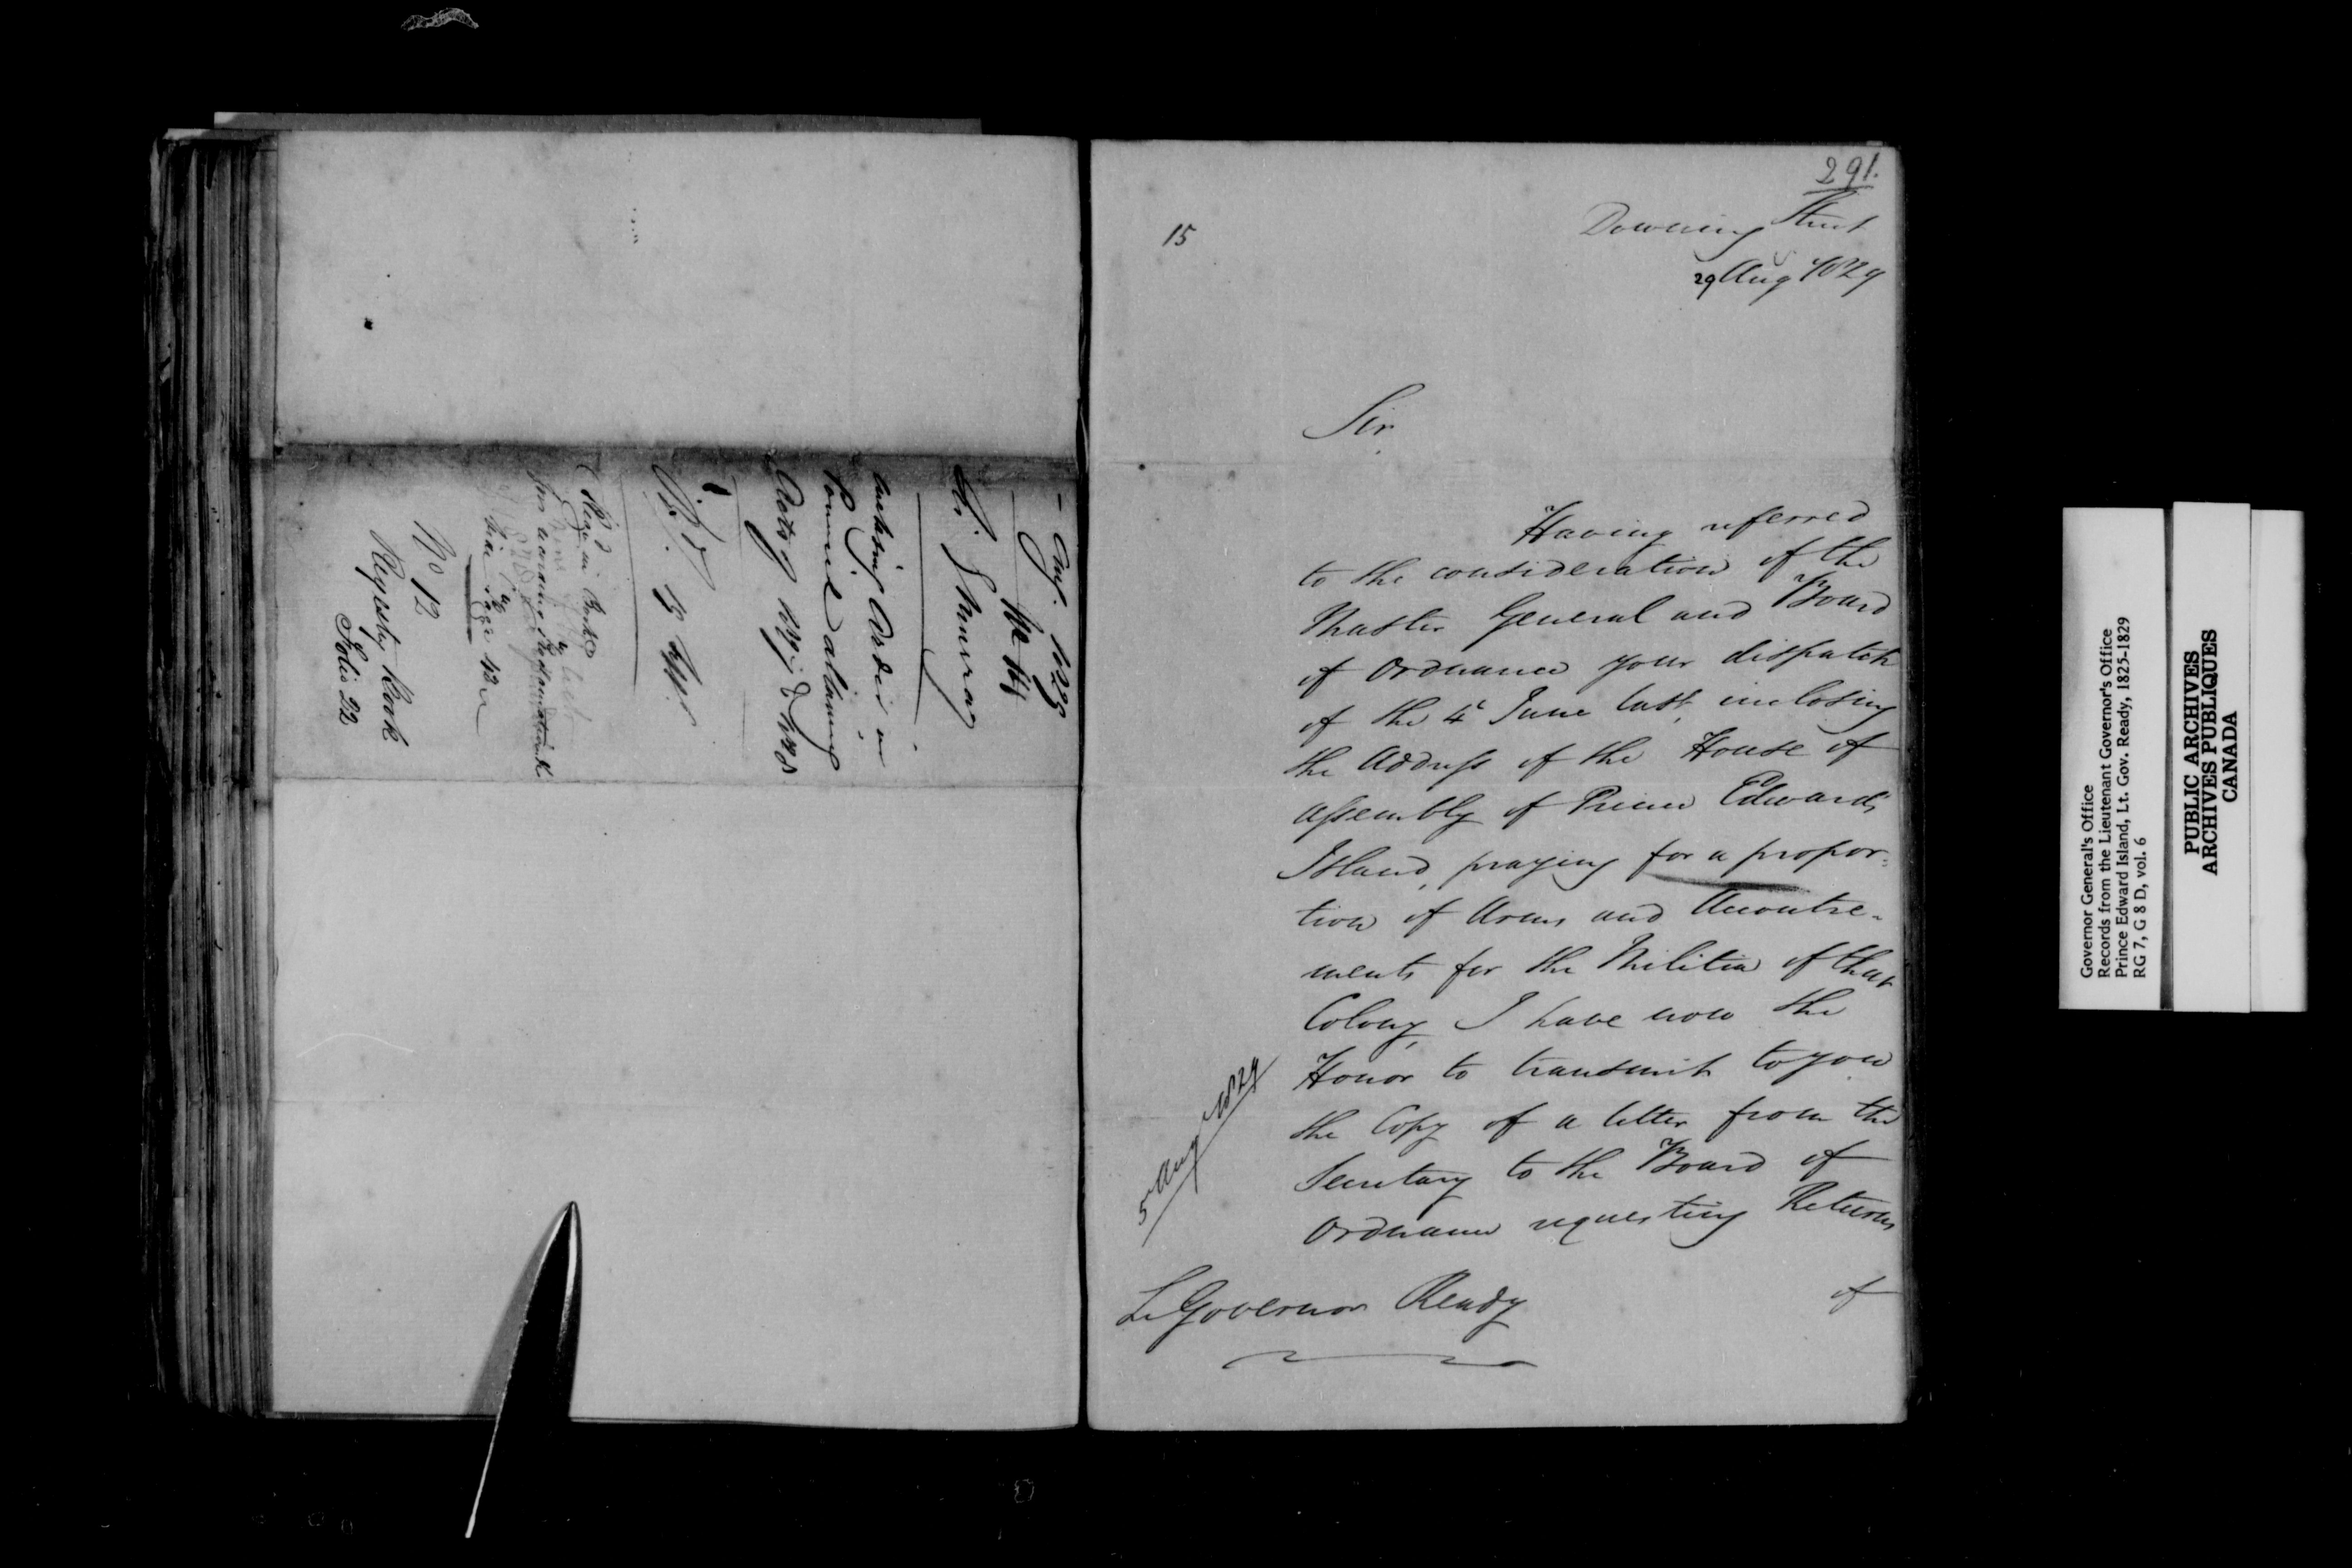 Aug. 1829
No 14
Sir G Murray
Inclosing Order in
Council allowing
Acts of 1827 & 1828
No 12
Registry Book
Folio 22
291.
15
Downing Street
29 Aug 1829
Sir,
Having referred
to the consideration of the
Master General and Board
of Ordnance your dispatch
of the 4th June last, inclosing
the Address of the House of
Assembly of Prince Edward's
Island, praying for a propor=
tion of Arms and Accoutre-
ments for the Militia of that
Colony, I have now the
Honor to transmit to you
the Copy of a letter from the
Secretary to the Board of
Ordnance requesting Returns
of
5 Aug 1829
Lt Governor Ready
Governor General's Office
Records from the Lieutenant Governor's Office
Prince Edward Island, Lt. Gov. Ready, 1825-1829
RG 7, G 8 D, vol. 6
PUBLIC ARCHIVES
ARCHIVES PUBLIQUES
CANADA